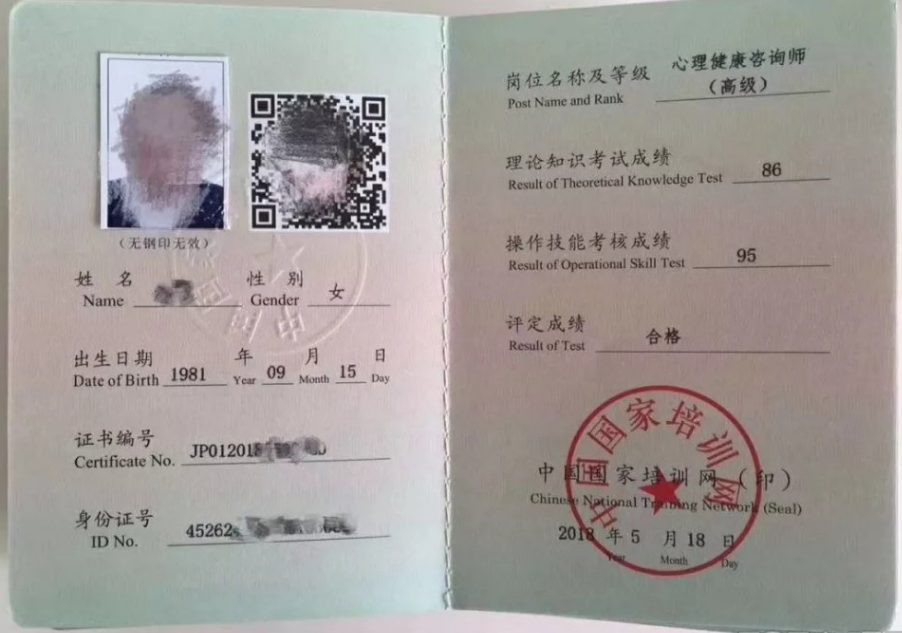 （无钢印无效）
姓 名 性 别 女
Name Gender
出生日期 1981 年 09 月 15 日
Date of Birth Year Month Day
证书编号 JP01201
Certificate No.
身份证号 45262
ID No.
岗位名称及等级 心理健康咨询师
Post Name and Rank （高级）
理论知识考试成绩 86
Result of Theoretical Knowledge Test
操作技能考核成绩 95
Result of Operational Skill Test
评定成绩 合格
Result of Test
中国国家培训网
中国国家培训网（印）
Chinese National Training Network (Seal)
2018 年 5 月 18 日
Year Month Day